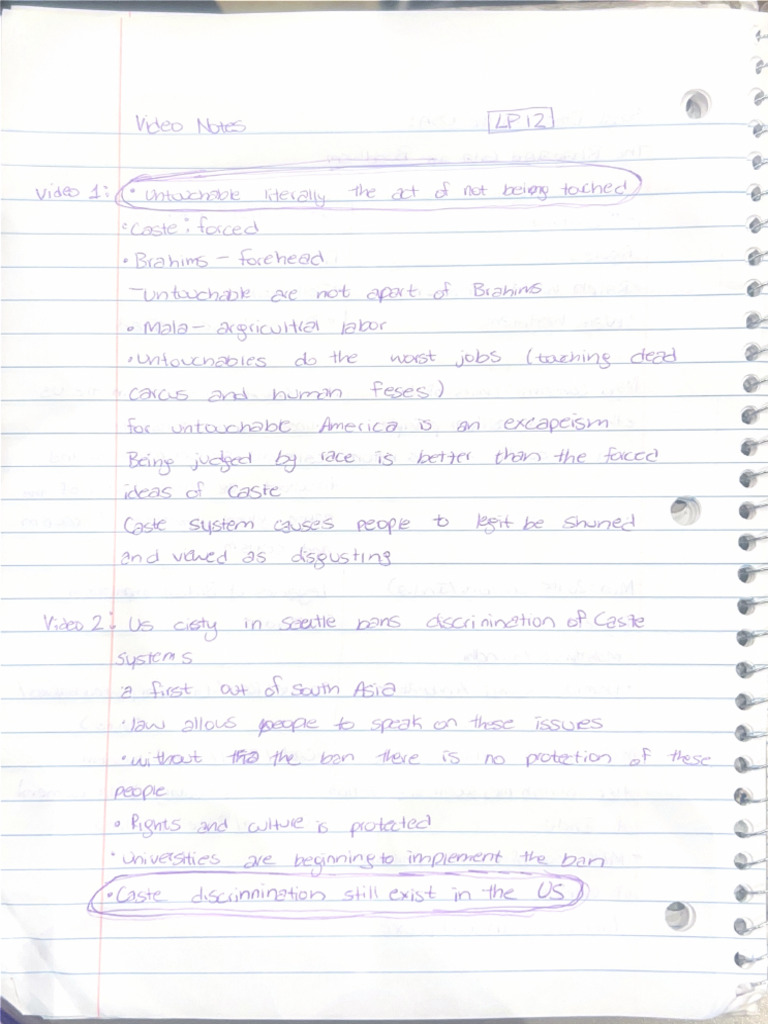 Video Notes LP12
Video 1: • Untouchable literally the act of not being toched
• Caste: forced
• Brahims - forehead
- Untouchable are not apart of Brahims
• Mala - argricultral labor
• Untouchables do the worst jobs (toching dead
carcus and human feses)
for untouchable America is an excapeism
Being judged by race is better than the forced
ideas of caste
Caste system causes people to legit be shuned
and viewed as disgusting
Video 2: US cisty in Seatle bans discrinination of Caste
systems
a first out of South Asia
• law allows people to speak on these issues
• without the ban there is no protection of these
people
• Rights and culture is protected
• Universities are beginning to implement the ban
• Caste discrinnination still exist in the US